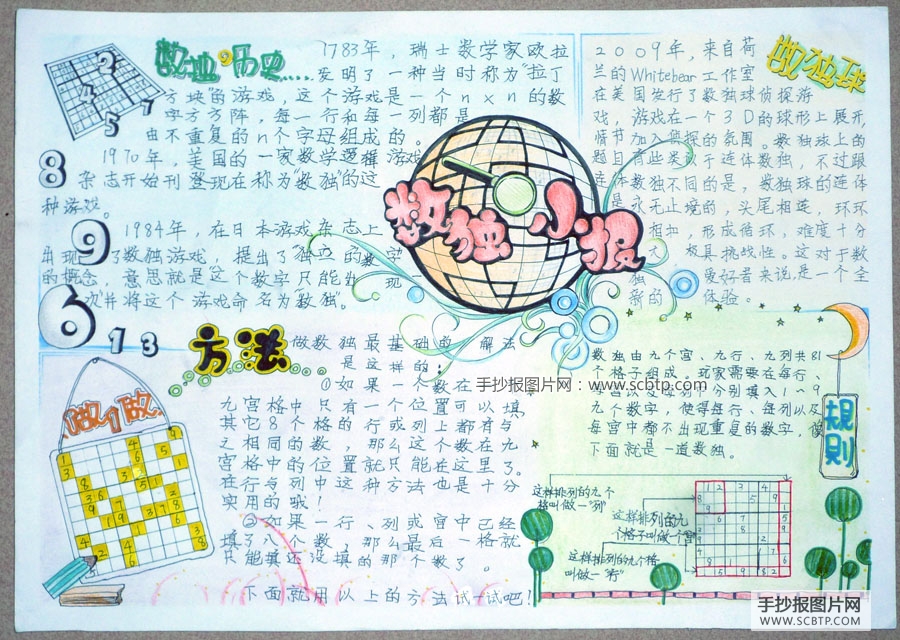 数独の历史....
1783年，瑞士数学家欧拉
发明了一种当时称为"拉丁
方块"的游戏，这个游戏是一个n×n的数
字方阵，每一行和每一列都是
由不重复的n个字母组成的。
1970年，美国的一家数学逻辑游戏
杂志开始刊登现在称为"数独"的这
种游戏。
1984年，在日本游戏杂志上
出现了数独游戏，提出了"独立的数字"
的概念，意思就是"这个数字只能出现
一次"并将这个游戏命名为"数独"。
数独小报
数独球
2009年，来自荷
兰的Whitebear工作室
在美国发行了数独球侦探游
戏，游戏在一个3D的球形上展开，
情节加入侦探的氛围。数独球上的
题目有些类似于连体数独，不过跟
连体数独不同的是，数独球的连体
是永无止境的，头尾相连，环环
相扣，形成循环，难度十分
极具挑战性。这对于数
独爱好者来说是一个全
新的体验。
方法...
做数独最基础的解法
是这样的：
①如果一个数在
九宫格中只有一个位置可以填，
其它8个格的行或列上都有与
之相同的数，那么这个数在九
宫格中的位置就只能在这里了。
在行与列中这种方法也是十分
实用的哦！
②如果一行、列或宫中已经
填了八个数，那么最后一格就
只能填还没填的那个数了。
下面就用以上的方法试一试吧！
做个做...
规则
数独由九个宫、九行、九列共81
个格子组成。玩家需要在每行、
每宫以及每列中分别填入1～9
九个数字，使得每行、每列以及
每宫中都不出现重复的数字，像
下面就是一道数独。
这样排列的九个
格叫做一"列"
这样排列的九
个格子叫做一个"宫"
这样排列的九个格
叫做一"行"
手抄报图片网：www.scbtp.com
手抄报图片网
WWW.SCBTP.COM